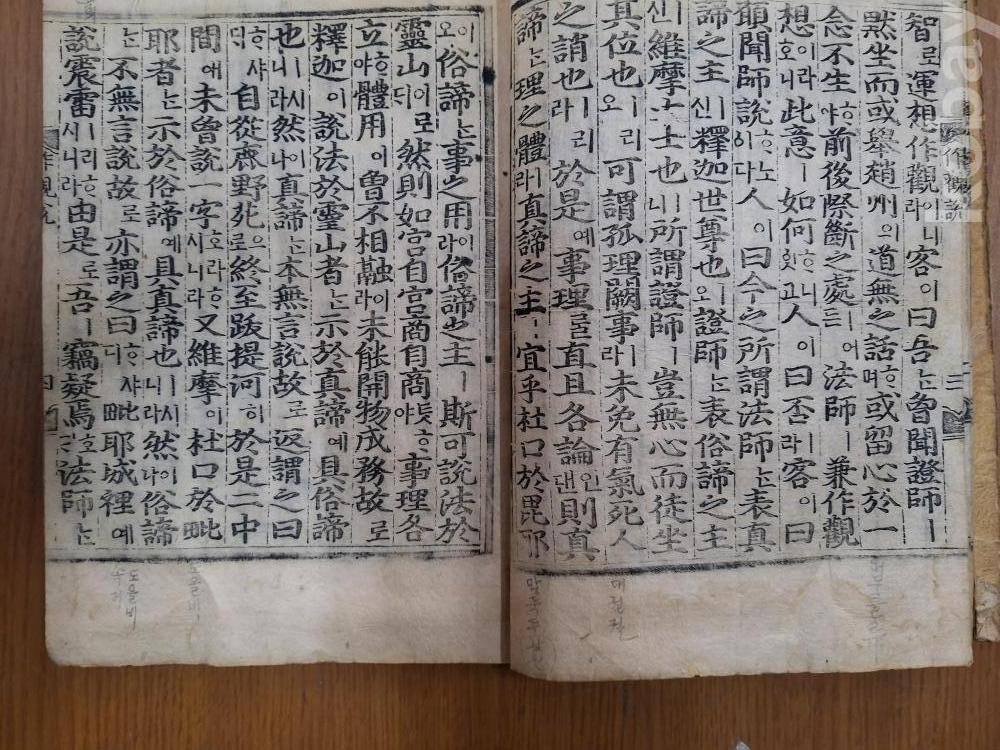 智로運想作觀이니라客이曰吾는曾聞證師ㅣ
黙坐而或擧趙州의道無之話ᄒᆞ며或留心於一
念不生ᄒᆞ야前後際斷之處ㅣ어든法師ㅣ兼作觀
想이라호니此意ㅣ如何ᄒᆞ잇고人이曰否라客이曰
願聞師說ᄒᆞ노이다人이曰今之所謂法師는表真
諦之主신釋迦世尊也오證師는表俗諦之主
신維摩大士也ㅣ니所謂證師ㅣ豈無心而徒坐
其位也ㅣ리오可謂孤理闕事라未免有氣死人
之誚也ㅣ리라於是에事理를直且各論인댄則真
諦는理之體라真諦之主ㅣ宜乎杜口於毘耶
이오俗諦는事之用이라俗諦之主ㅣ斯可說法於
靈山이로ᄃᆡ然則如宮自宮商自商ᄒᆞ야事理各
立ᄒᆞ야體用이曾不相融이라未能開物成務故로
釋迦이說法於靈山者는示於真諦예具俗諦
也ㅣ시니라然이나真諦는本無言說故로返謂之曰
ᄒᆞ샤ᄃᆡ自從鹿野苑으로終至跋提河히於是二中
間애未曾說一字호라ᄒᆞ시니라又維摩이杜口於毗
耶者는示於俗諦예具真諦也ㅣ시니라然이나俗諦
는不無言說故로亦謂之曰ᄒᆞ샤ᄃᆡ毗耶城裡예
說震雷ᄒᆞ리ㅣ시니라由是로吾ㅣ竊疑焉ᄒᆞ노니法師는
作觀說
三